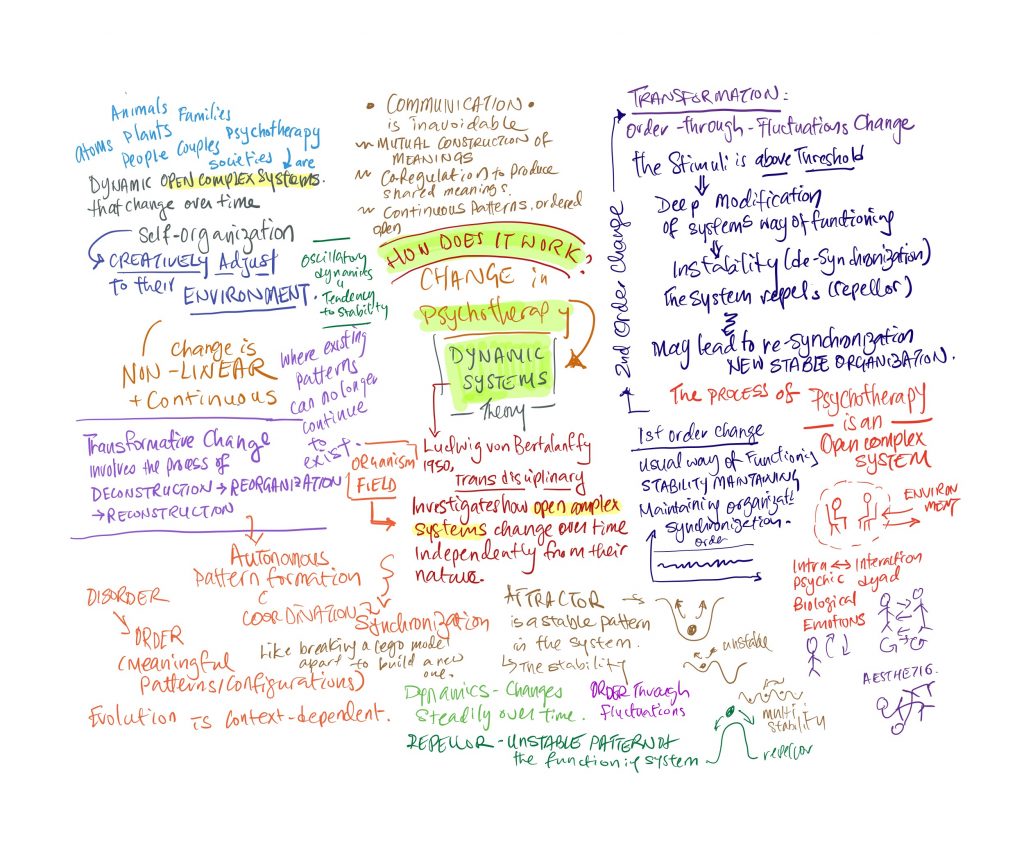 Animals Families
Atoms Plants Psychotherapy
People Couples
societies are
DYNAMIC OPEN COMPLEX SYSTEMS.
that change over time
Self-ORGANIZATION
CREATIVELY Adjust
to their
ENVIRONMENT.
Oscillatory
dynamics
Tendency
to stability
Change is
NON-LINEAR
+ Continuous
where existing
patterns
can no longer
continue
to
exist.
Transformative Change
involves the process of
DECONSTRUCTION → REORGANIZATION
→ RECONSTRUCTION
Autonomous
Pattern formation
C
COORDINATION
Synchronization
DISORDER
ORDER
(Meaningful
Patterns/Configurations)
Like breaking a Lego model
apart to build a new
one.
Evolution is context-dependent.
• COMMUNICATION •
is inavoidable
MUTUAL CONSTRUCTION OF
MEANINGS
Co-Regulation to Produce
shared meanings.
Continuous Patterns, ordered
open
HOW DOES IT WORK?
CHANGE in
Psychotherapy
DYNAMIC
SYSTEMS
Theory
ORGANISM
FIELD
Ludwig von Bertalanffy
1950,
Trans disciplinary
Investigates how open complex
systems change over time
Independently from their
nature.
ATTRACTOR
is a stable pattern
in the system.
↳ The stability
Dynamics - Changes
Steadily over time.
ORDER Through
Fluctuations
REPELLOR - UNSTABLE PATTERN of
the functioning system
unstable
multi
stability
repellor
TRANSFORMATION:
Order-through-Fluctuations Change
the Stimuli is above Threshold
Deep Modification
of systems way of functioning
Instability (de-Synchronization)
The System repels (repellor)
May lead to re-Synchronization
NEW STABLE ORGANIZATION.
2nd Order Change
The PROCESS OF Psychotherapy
is an
Open complex
SYSTEM
1st order change
usual way of Functioning
STABILITY MAINTAINING
Maintaining organizati
Synchronization.
order
ENVIRON
MENT
Intra ↔ Interaction
psychic dyad
Biological
Emotions